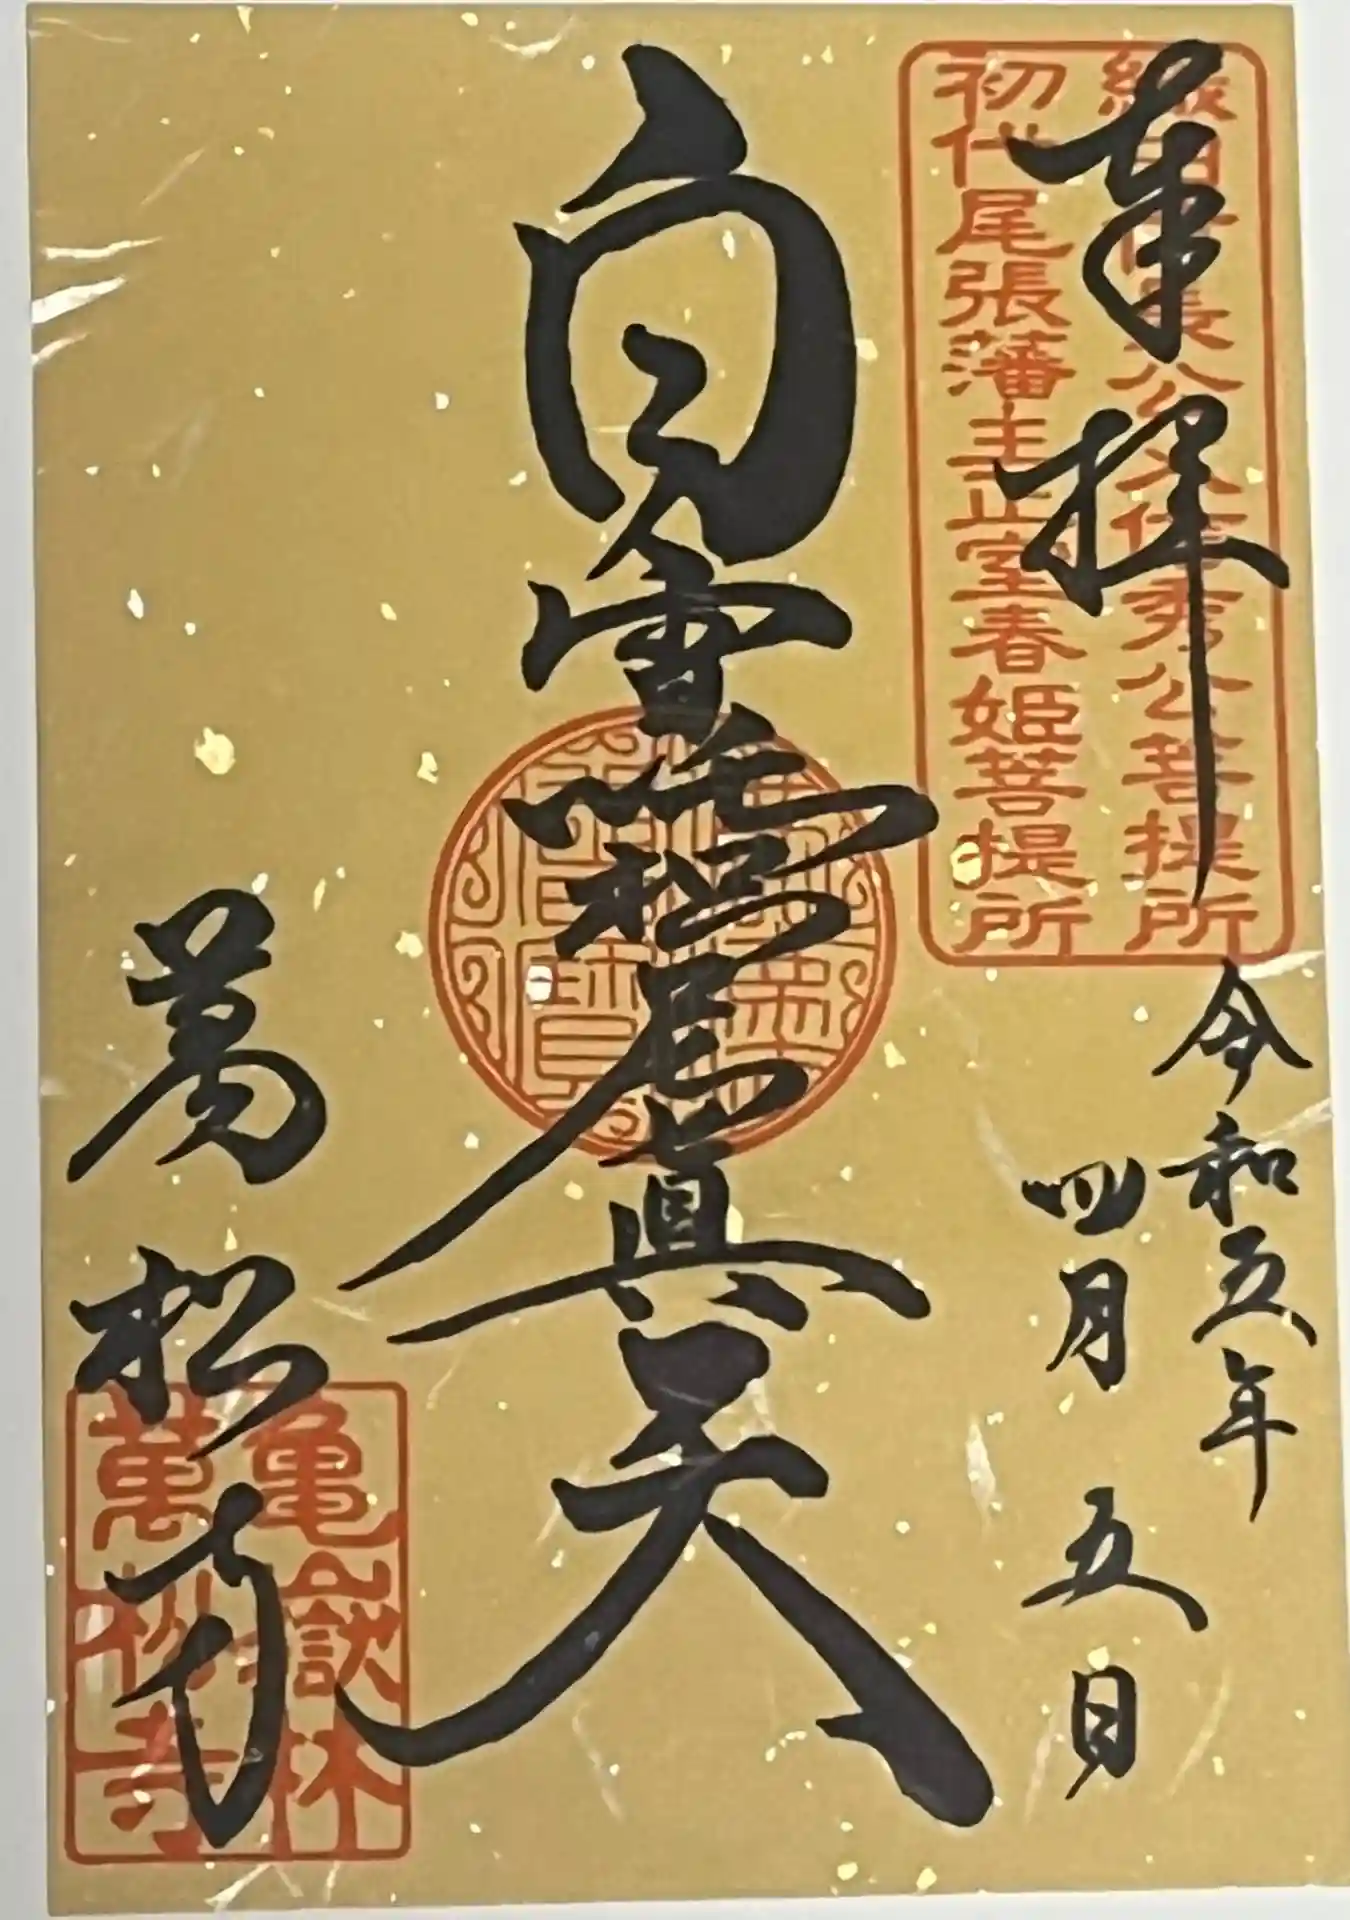 奉拝
織田信長公父信秀公菩提所
初代尾張藩主正室春姫菩提所
令和五年
四月五日
白雪吒枳尼眞天
萬松寺
亀嶽林
萬松寺